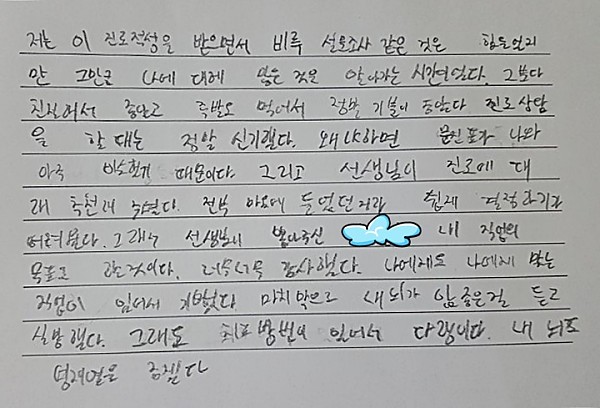 저는 이 진로적성을 받으면서 비록 설문조사 같은 것은 힘들었지
만 그만큼 나에 대해 많은 것을 알아가는 시간이었다. 그보다
친절해서 좋았고 족발도 먹어서 정말 기분이 좋았다 진로상담
을 할 때는 정말 신기했다. 왜냐하면 나와
아주 비슷했기 때문이다. 그리고 선생님이 진로에 대
해 추천해 주셨다. 전부 마음에 들었던거라 쉽게 결정하기가
어려웠다. 그래서 선생님이 내 직업의
목표로 너무너무 감사했다. 나에게도 나에게 맞는
직업이 있어서 기뻤다 마지막으로 내 뇌가 안좋은걸 듣고
실망했다. 그래도 치료 방법이 있어서 다행이다. 내 뇌도